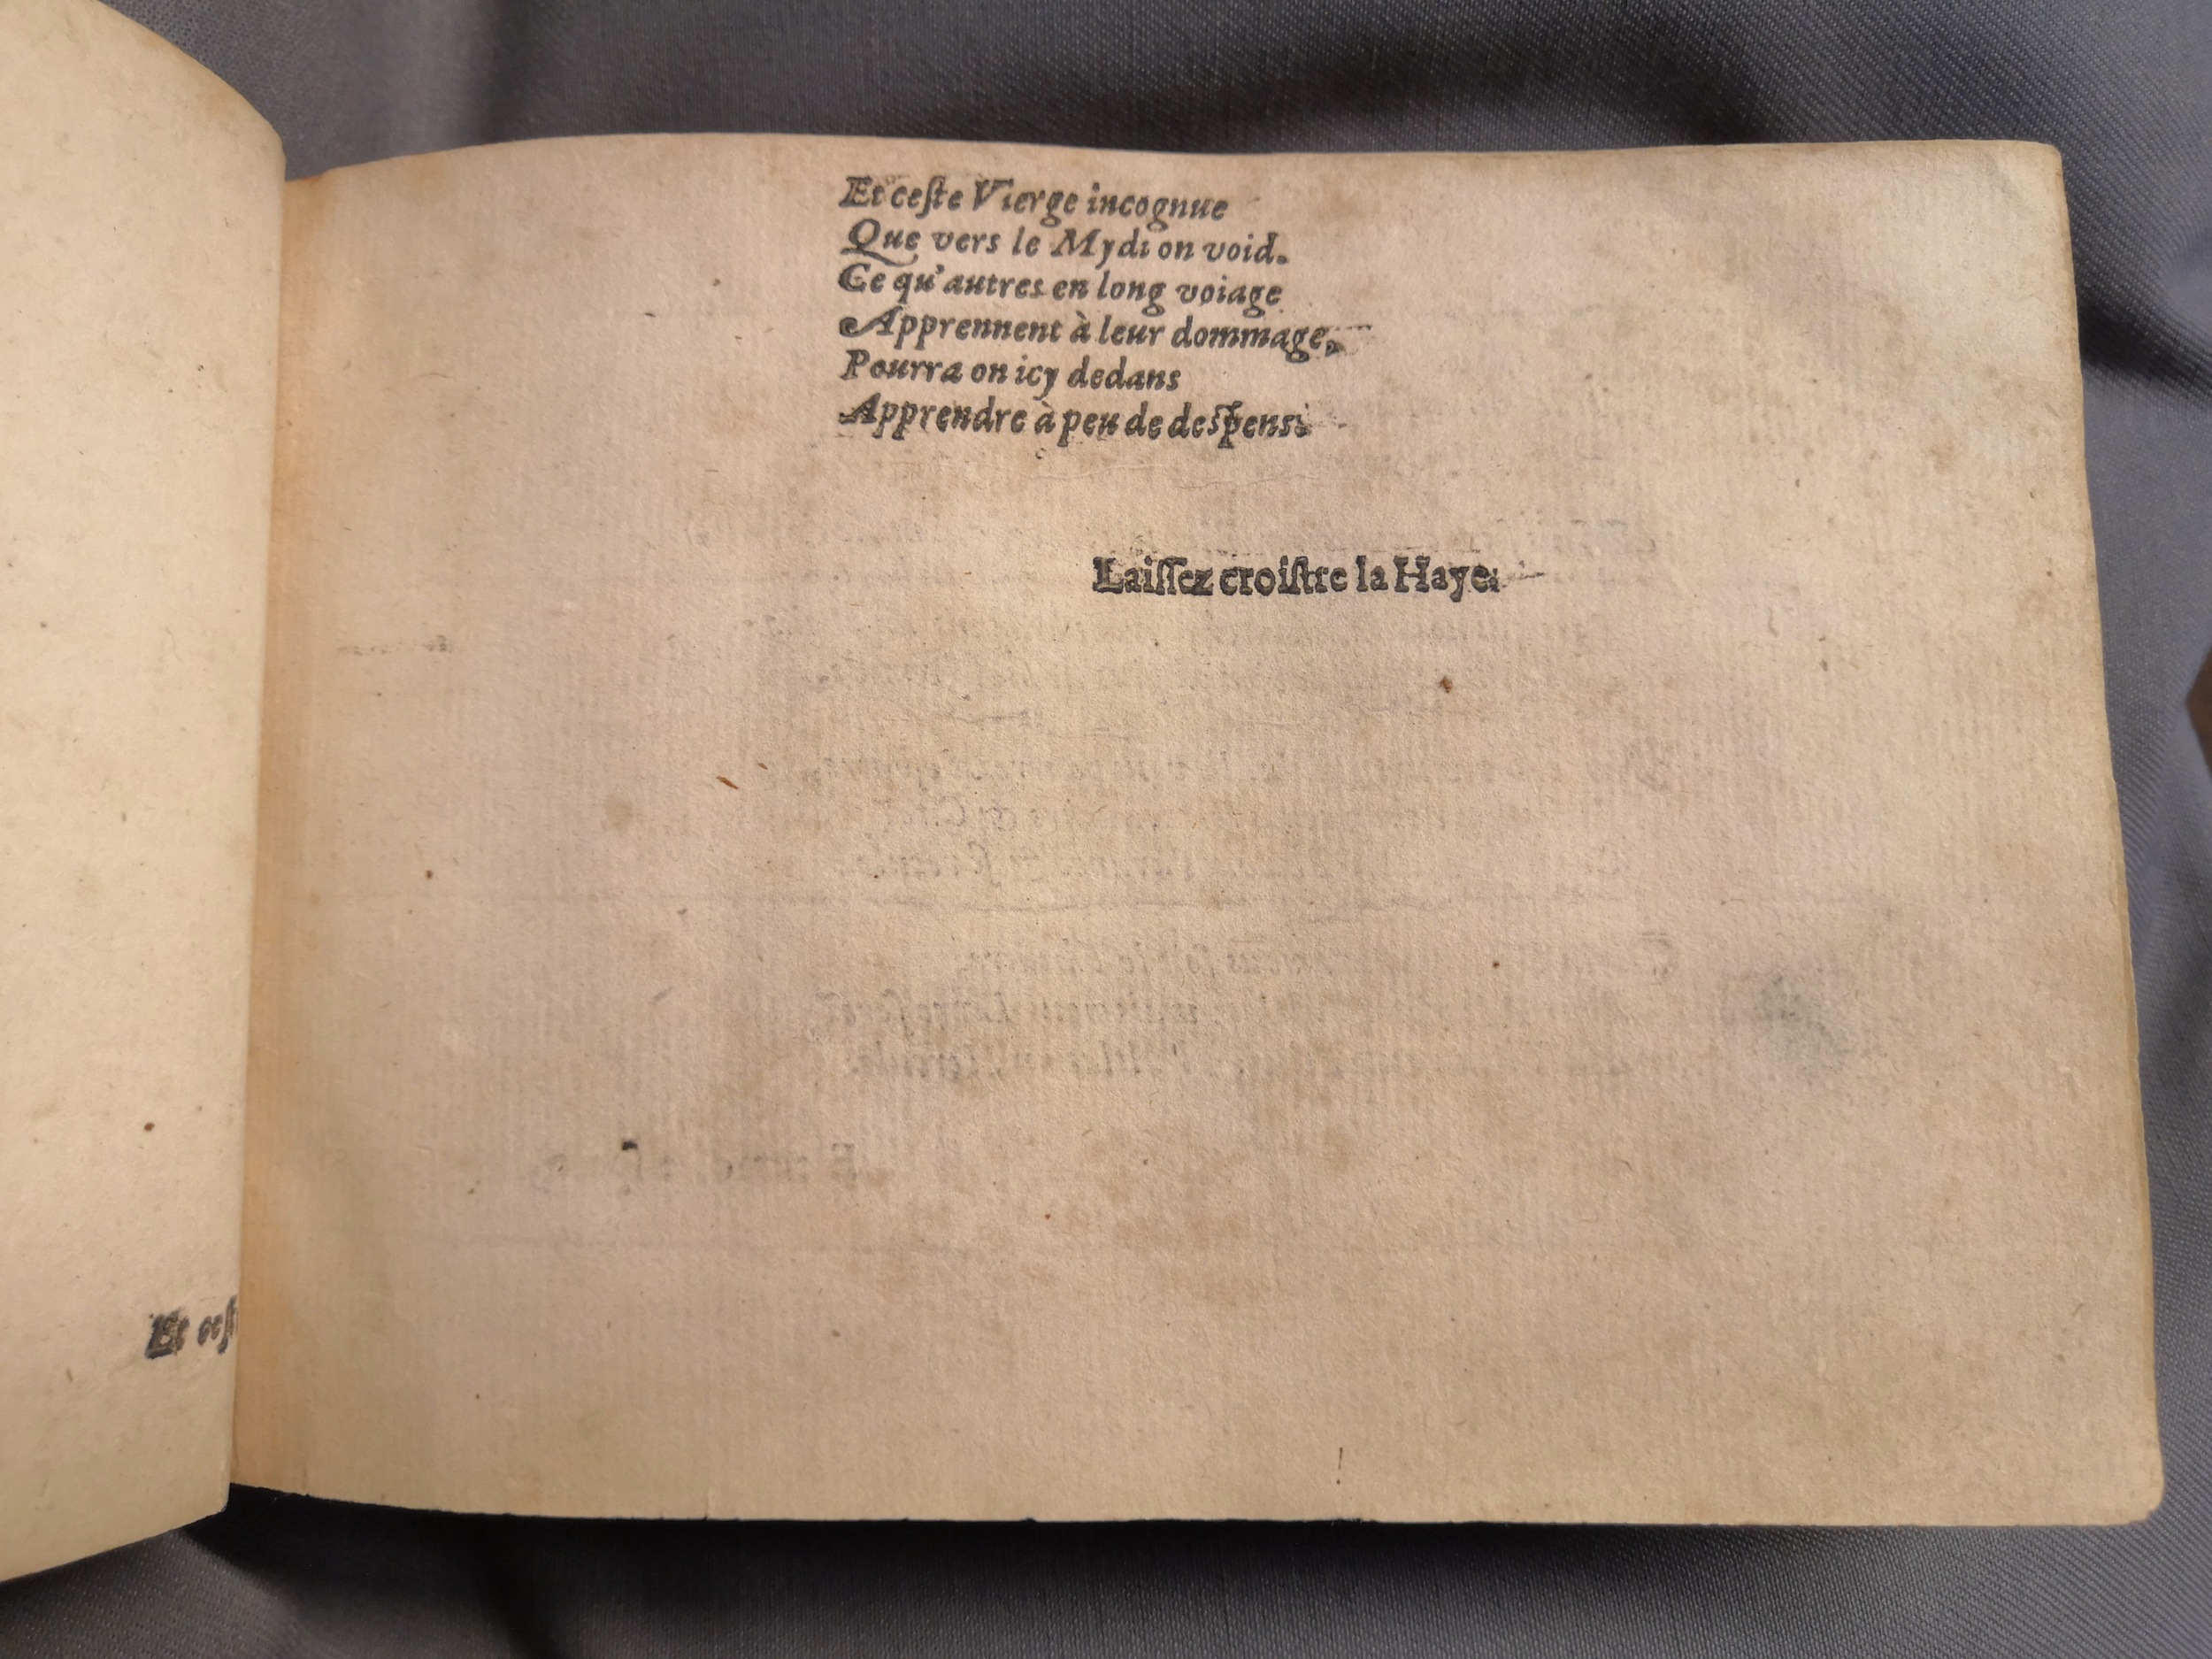 Et ceſte Vierge incognue
Que vers le Mydi on void.
Ce qu'autres en long voiage
Apprennent à leur dommage,
Pourra on icy dedans
Apprendre à peu de deſpens.
Laiſſez croiſtre la Haye.
Et ceſt